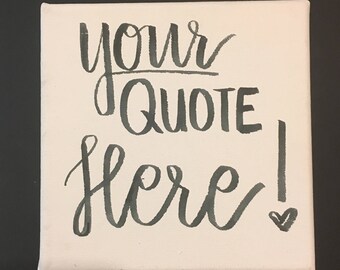 your
QUOTE
Here!